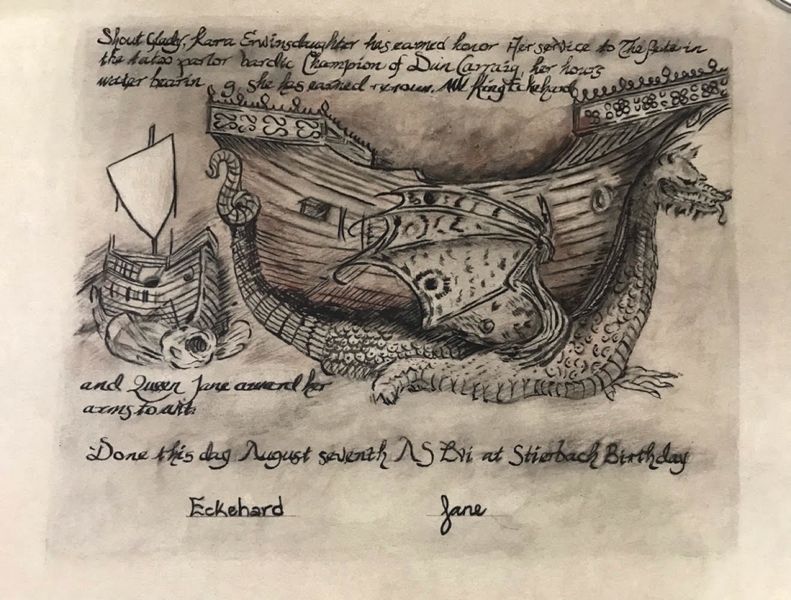 Shout Glady, Kara Erwinsdaughter has earned honor Her service to The fete in
the tatoo parlor bardic Champion of Dun Carraig, her hours
water bearin g, she has earned renown. We King Eckehard
and Queen Jane award her
arms to wit:
Done this day August seventh AS Lvi at Stierbach Birthday
Eckehard
Jane